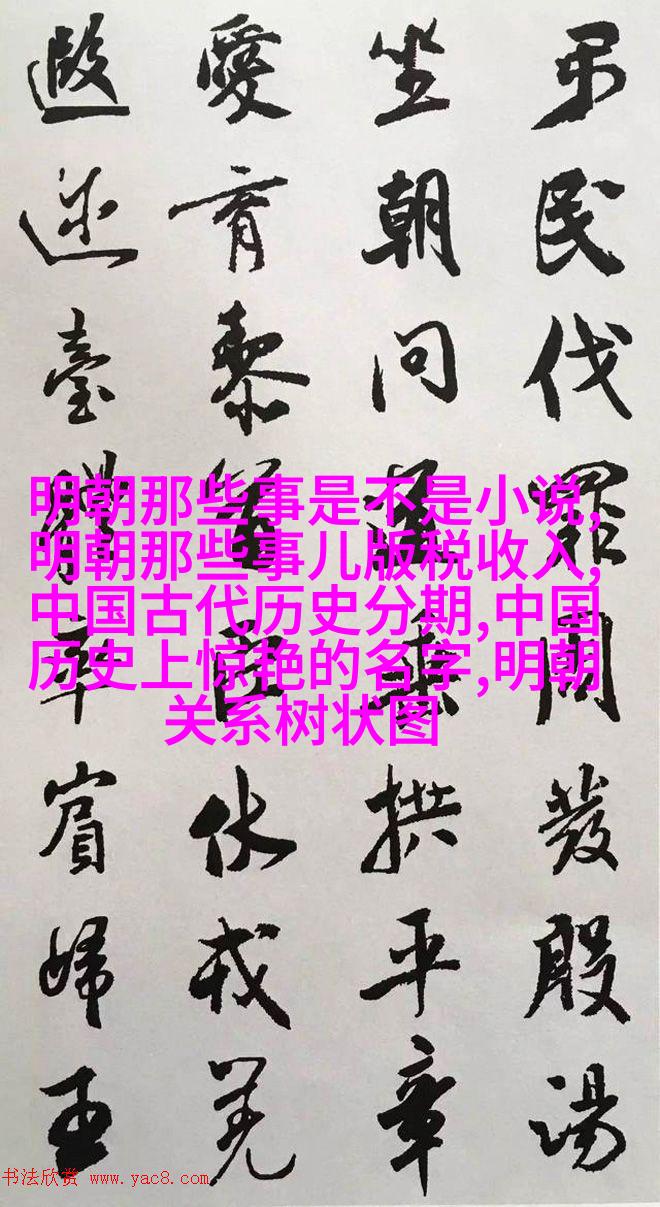 弔民伐罪周發殷湯
坐朝問道垂拱平章
愛育黎首臣伏戎羌
遐邇壹體率賓歸王
明朝那些事是不是小说,
明朝那些事儿版税收入,
中国古代历史分期,中国
历史上惊艳的名字,明朝
关系树状图
书法欣赏 www.yac8.com